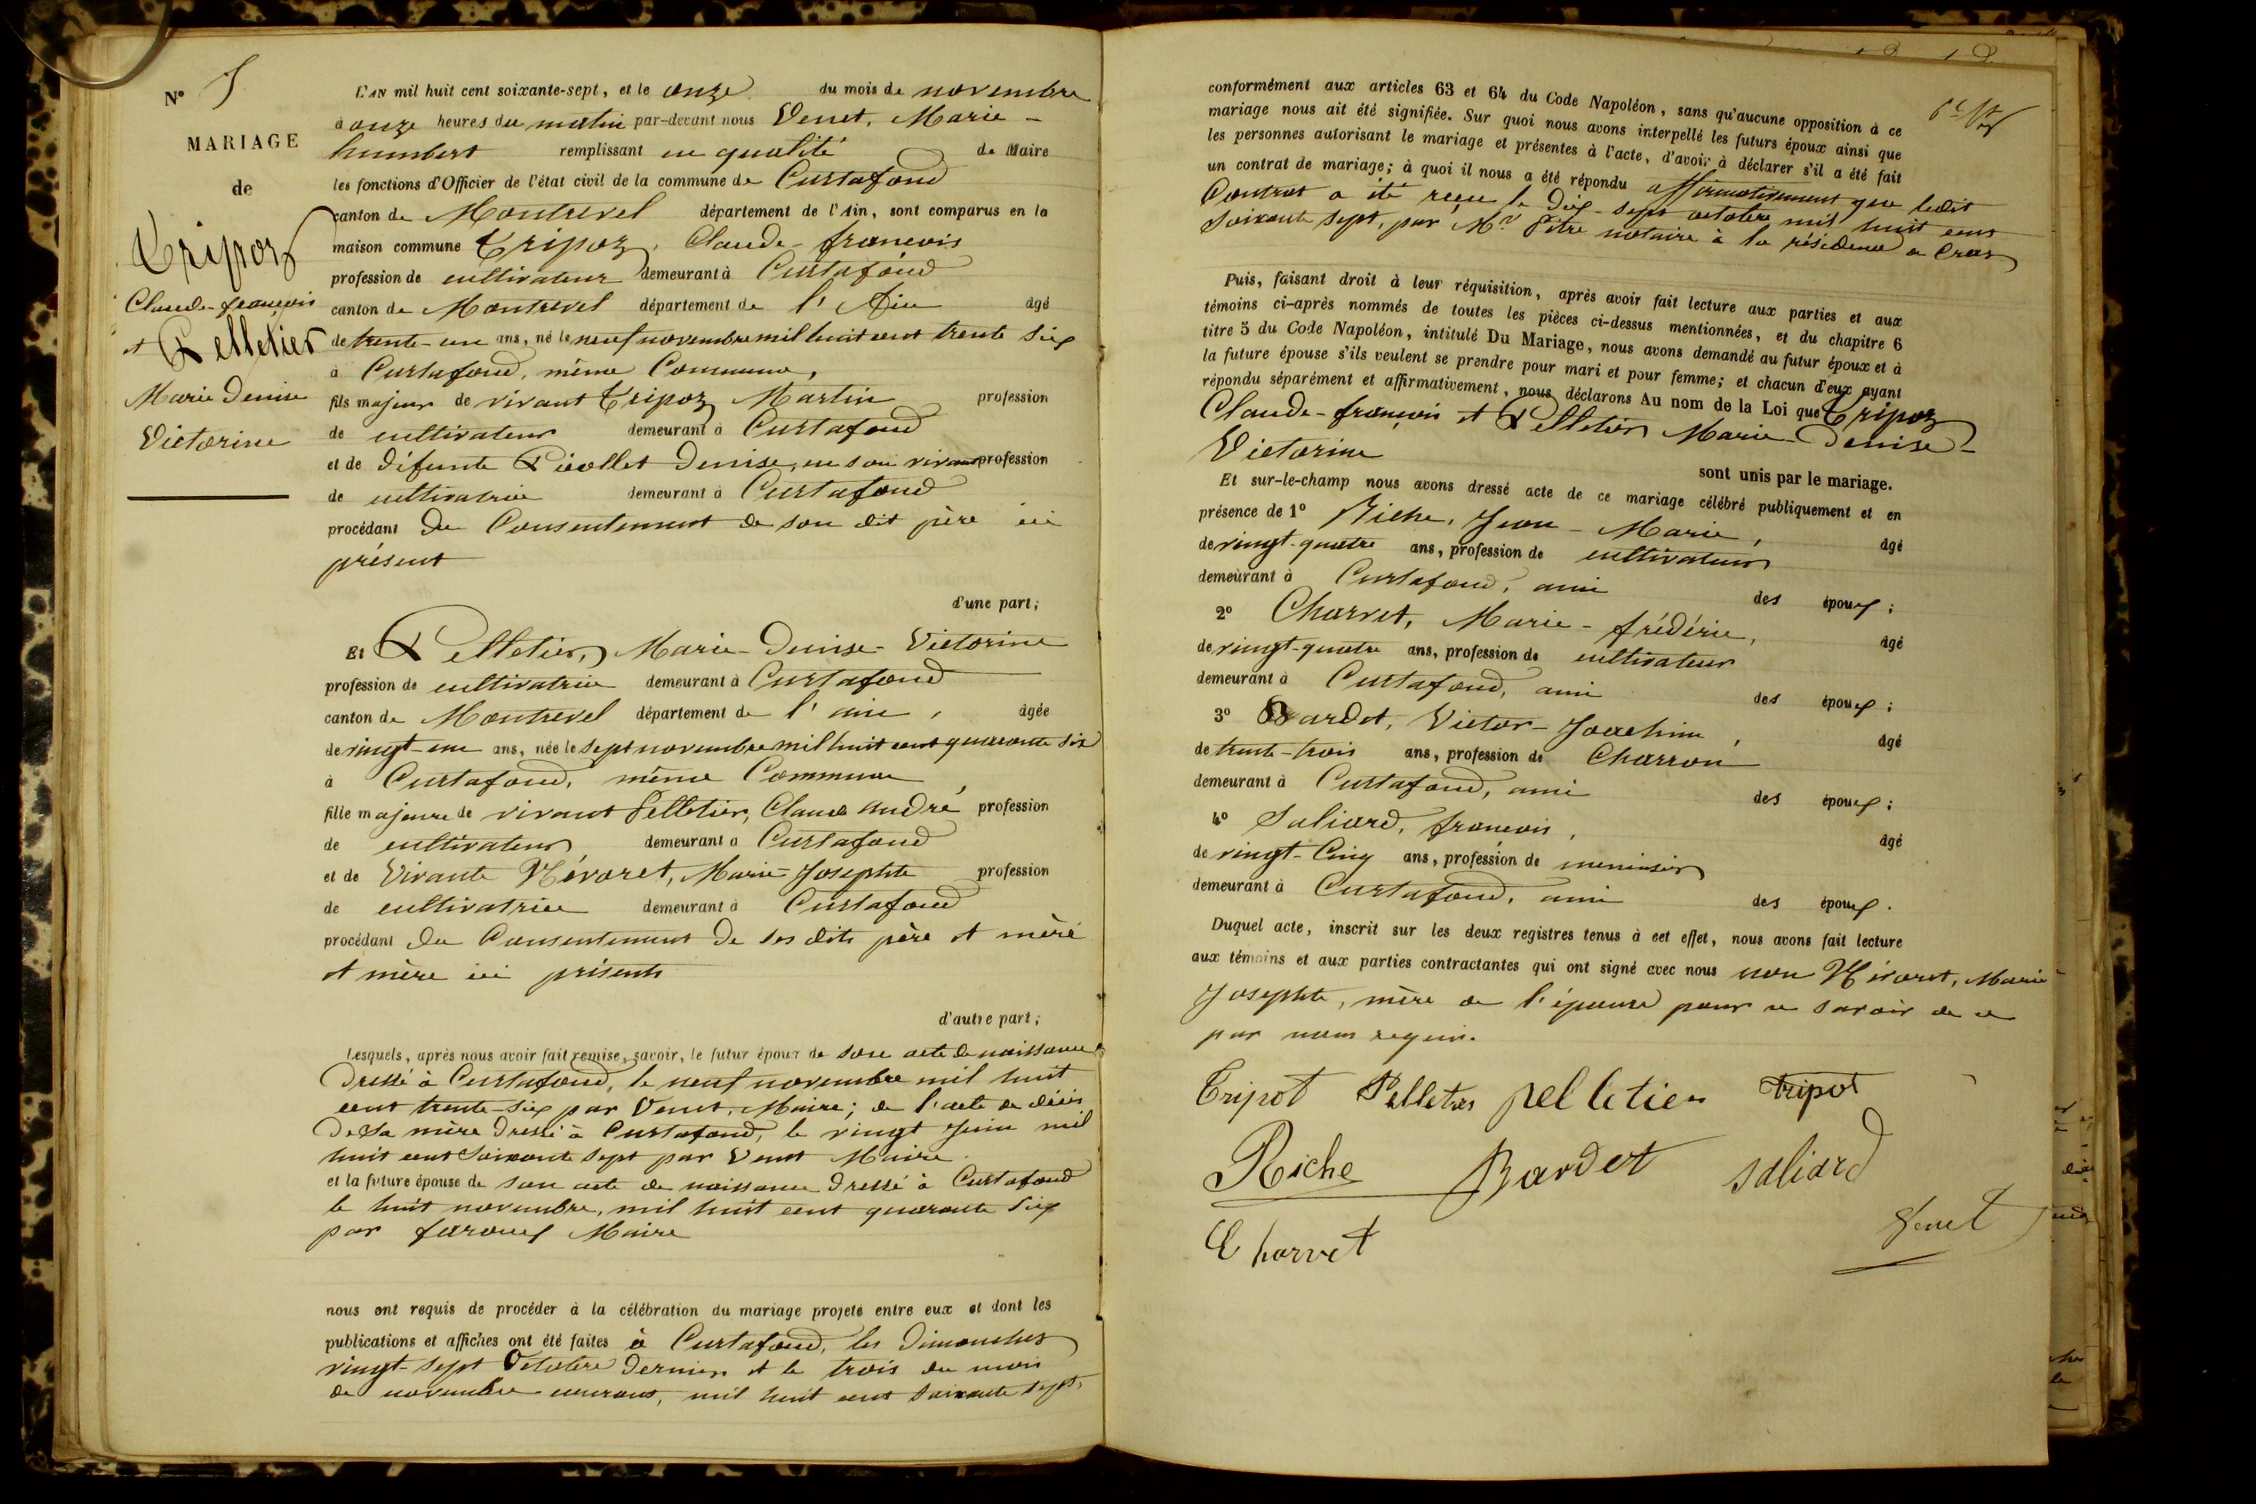 N° 5
MARIAGE
de
Tripoz
Claude-françois
et Pelletier
Marie Denise
Victorine
L'AN mil huit cent soixante-sept, et le onze du mois de novembre
à onze heures du matin par-devant nous Venet, Marie-
humbert remplissant en qualité de Maire
les fonctions d'Officier de l'état civil de la commune de Curtafond
canton de Montrevel département de l'Ain, sont comparus en la
maison commune Tripoz, Claude-françois
profession de cultivateur demeurant à Curtafond
canton de Montrevel département de l'Ain âgé
de trente-un ans, né le neuf novembre mil huit cent trente six
à Curtafond, même Commune,
fils majeur de vivant Tripoz Martin profession
de cultivateur demeurant à Curtafond
et de défunte Pivollet Denise, en son vivant profession
de cultivatrice demeurant à Curtafond
procédant du Consentement de son dit père ici
présent
d'une part;
Et Pelletier, Marie-Denise-Victorine
profession de cultivatrice demeurant à Curtafond
canton de Montrevel département de l'ain, âgée
de vingt-un ans, née le sept novembre mil huit cent quarante six
à Curtafond, même Commune
fille majeure de vivant Pelletier, Claude André profession
de cultivateur demeurant à Curtafond
et de Vivante Névoret, Marie-Josephte profession
de cultivatrice demeurant à Curtafond
procédant du Consentement de ses dits père et mère
et mère ici présents
d'autre part;
Lesquels, après nous avoir fait remise, savoir, le futur époux de son acte de naissance
dressé à Curtafond, le neuf novembre mil huit
cent trente-six par Venet, Maire; de l'acte de décès
de sa mère dressé à Curtafond, le vingt Juin mil
huit cent soixante sept par Venet Maire.
et la future épouse de son acte de naissance dressé à Curtafond
le huit novembre, mil huit cent quarante six
par faroux Maire
nous ont requis de procéder à la célébration du mariage projeté entre eux et dont les
publications et affiches ont été faites à Curtafond, les Dimanches
vingt-sept Octobre dernier et le trois du mois
de novembre courant, mil huit cent soixante sept,
conformément aux articles 63 et 64 du Code Napoléon, sans qu'aucune opposition à ce
mariage nous ait été signifiée. Sur quoi nous avons interpellé les futurs époux ainsi que
les personnes autorisant le mariage et présentes à l'acte, d'avoir à déclarer s'il a été fait
un contrat de mariage; à quoi il nous a été répondu affirmativement que ledit
Contrat a été reçu le dix-sept octobre mil huit cent
soixante sept, par Mr. Pitre notaire à la résidence de Cras
Puis, faisant droit à leur réquisition, après avoir fait lecture aux parties et aux
témoins ci-après nommés de toutes les pièces ci-dessus mentionnées, et du chapitre 6
titre 5 du Code Napoléon, intitulé Du Mariage, nous avons demandé au futur époux et à
la future épouse s'ils veulent se prendre pour mari et pour femme; et chacun d'eux ayant
répondu séparément et affirmativement, nous déclarons Au nom de la Loi que Tripoz
Claude-françois et Pelletier Marie-Denise-
Victorine
sont unis par le mariage.
Et sur-le-champ nous avons dressé acte de ce mariage célébré publiquement et en
présence de 1° Riche, Jean-Marie, âgé
de vingt-quatre ans, profession de cultivateur
demeurant à Curtafond, ami des époux;
2° Charvet, Marie-frédéric, âgé
de vingt-quatre ans, profession de cultivateur
demeurant à Curtafond, ami des époux;
3° Bardet, Victor-Joachim, âgé
de trente-trois ans, profession de Charron
demeurant à Curtafond, ami des époux;
4° Saliard, françois, âgé
de vingt-Cinq ans, profession de menuisier
demeurant à Curtafond, ami des époux.
Duquel acte, inscrit sur les deux registres tenus à cet effet, nous avons fait lecture
aux témoins et aux parties contractantes qui ont signé avec nous non Névoret, Marie
Josephte, mère de l'épouse pour ne savoir de ce
par nous requis.
Tripot Pelletier pelletier tripot
Riche Bardet saliard
Charvet Venet